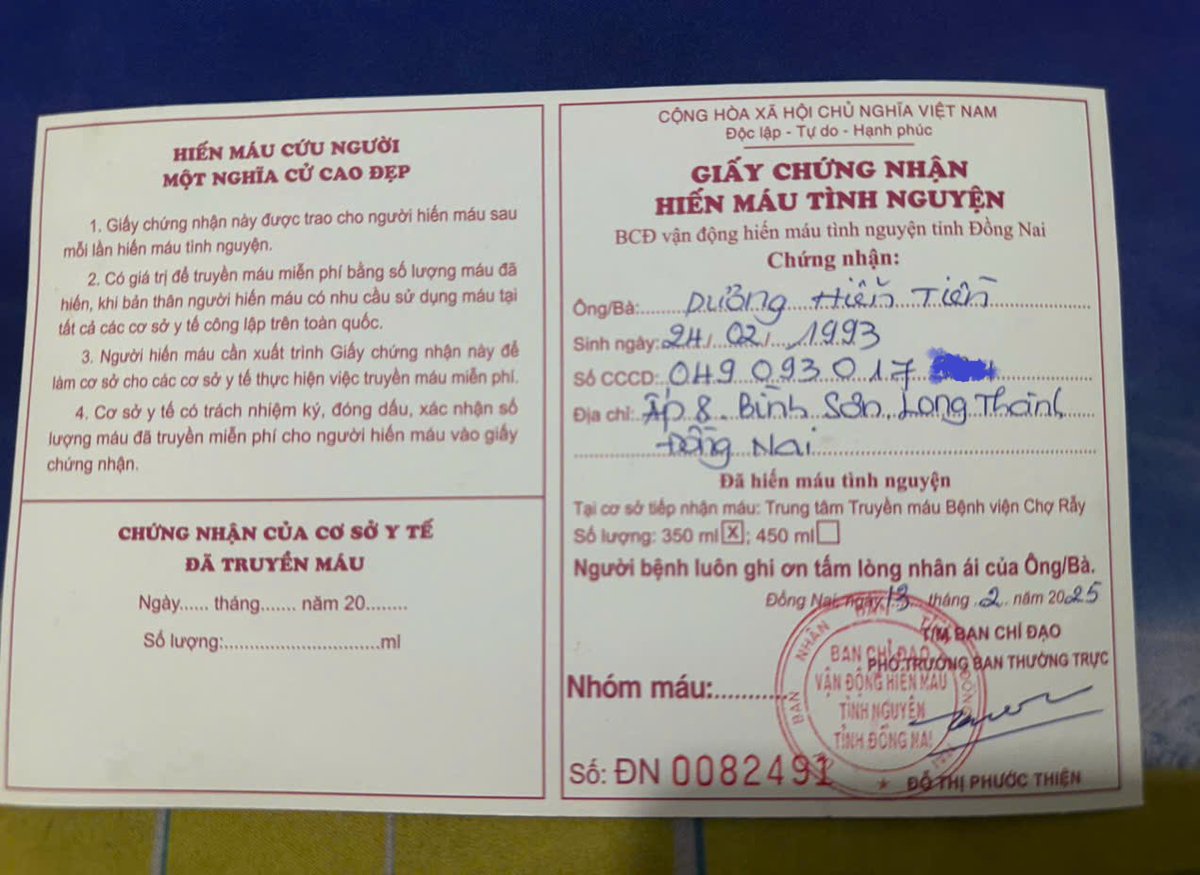 HIẾN MÁU CỨU NGƯỜI
MỘT NGHĨA CỬ CAO ĐẸP
1. Giấy chứng nhận này được trao cho người hiến máu sau
mỗi lần hiến máu tình nguyện.
2. Có giá trị để truyền máu miễn phí bằng số lượng máu đã
hiến, khi bản thân người hiến máu có nhu cầu sử dụng máu tại
tất cả các cơ sở y tế công lập trên toàn quốc.
3. Người hiến máu cần xuất trình Giấy chứng nhận này để
làm cơ sở cho các cơ sở y tế thực hiện việc truyền máu miễn phí.
4. Cơ sở y tế có trách nhiệm ký, đóng dấu, xác nhận số
lượng máu đã truyền miễn phí cho người hiến máu vào giấy
chứng nhận.
CHỨNG NHẬN CỦA CƠ SỞ Y TẾ
ĐÃ TRUYỀN MÁU
Ngày...... tháng....... năm 20........
Số lượng:..............................ml
CỘNG HÒA XÃ HỘI CHỦ NGHĨA VIỆT NAM
Độc lập - Tự do - Hạnh phúc
GIẤY CHỨNG NHẬN
HIẾN MÁU TÌNH NGUYỆN
BCĐ vận động hiến máu tình nguyện tỉnh Đồng Nai
Chứng nhận:
Ông/Bà: Dương Hiển Tiên
Sinh ngày: 24/02/1993
Số CCCD: 049 093 017
Địa chỉ: Ấp 8. Bình Sơn, Long Thành
Đồng Nai
Đã hiến máu tình nguyện
Tại cơ sở tiếp nhận máu: Trung tâm Truyền máu Bệnh viện Chợ Rẫy
Số lượng: 350 ml [X]; 450 ml
Người bệnh luôn ghi ơn tấm lòng nhân ái của Ông/Bà.
Đồng Nai, ngày 13 tháng 2 năm 2025
T/M BAN CHỈ ĐẠO
PHÓ TRƯỞNG BAN THƯỜNG TRỰC
BAN CHỈ ĐẠO
VẬN ĐỘNG HIẾN MÁU
TÌNH NGUYỆN
TỈNH ĐỒNG NAI
Nhóm máu:..........
Số: ĐN 0082491
ĐỖ THỊ PHƯỚC THIỆN